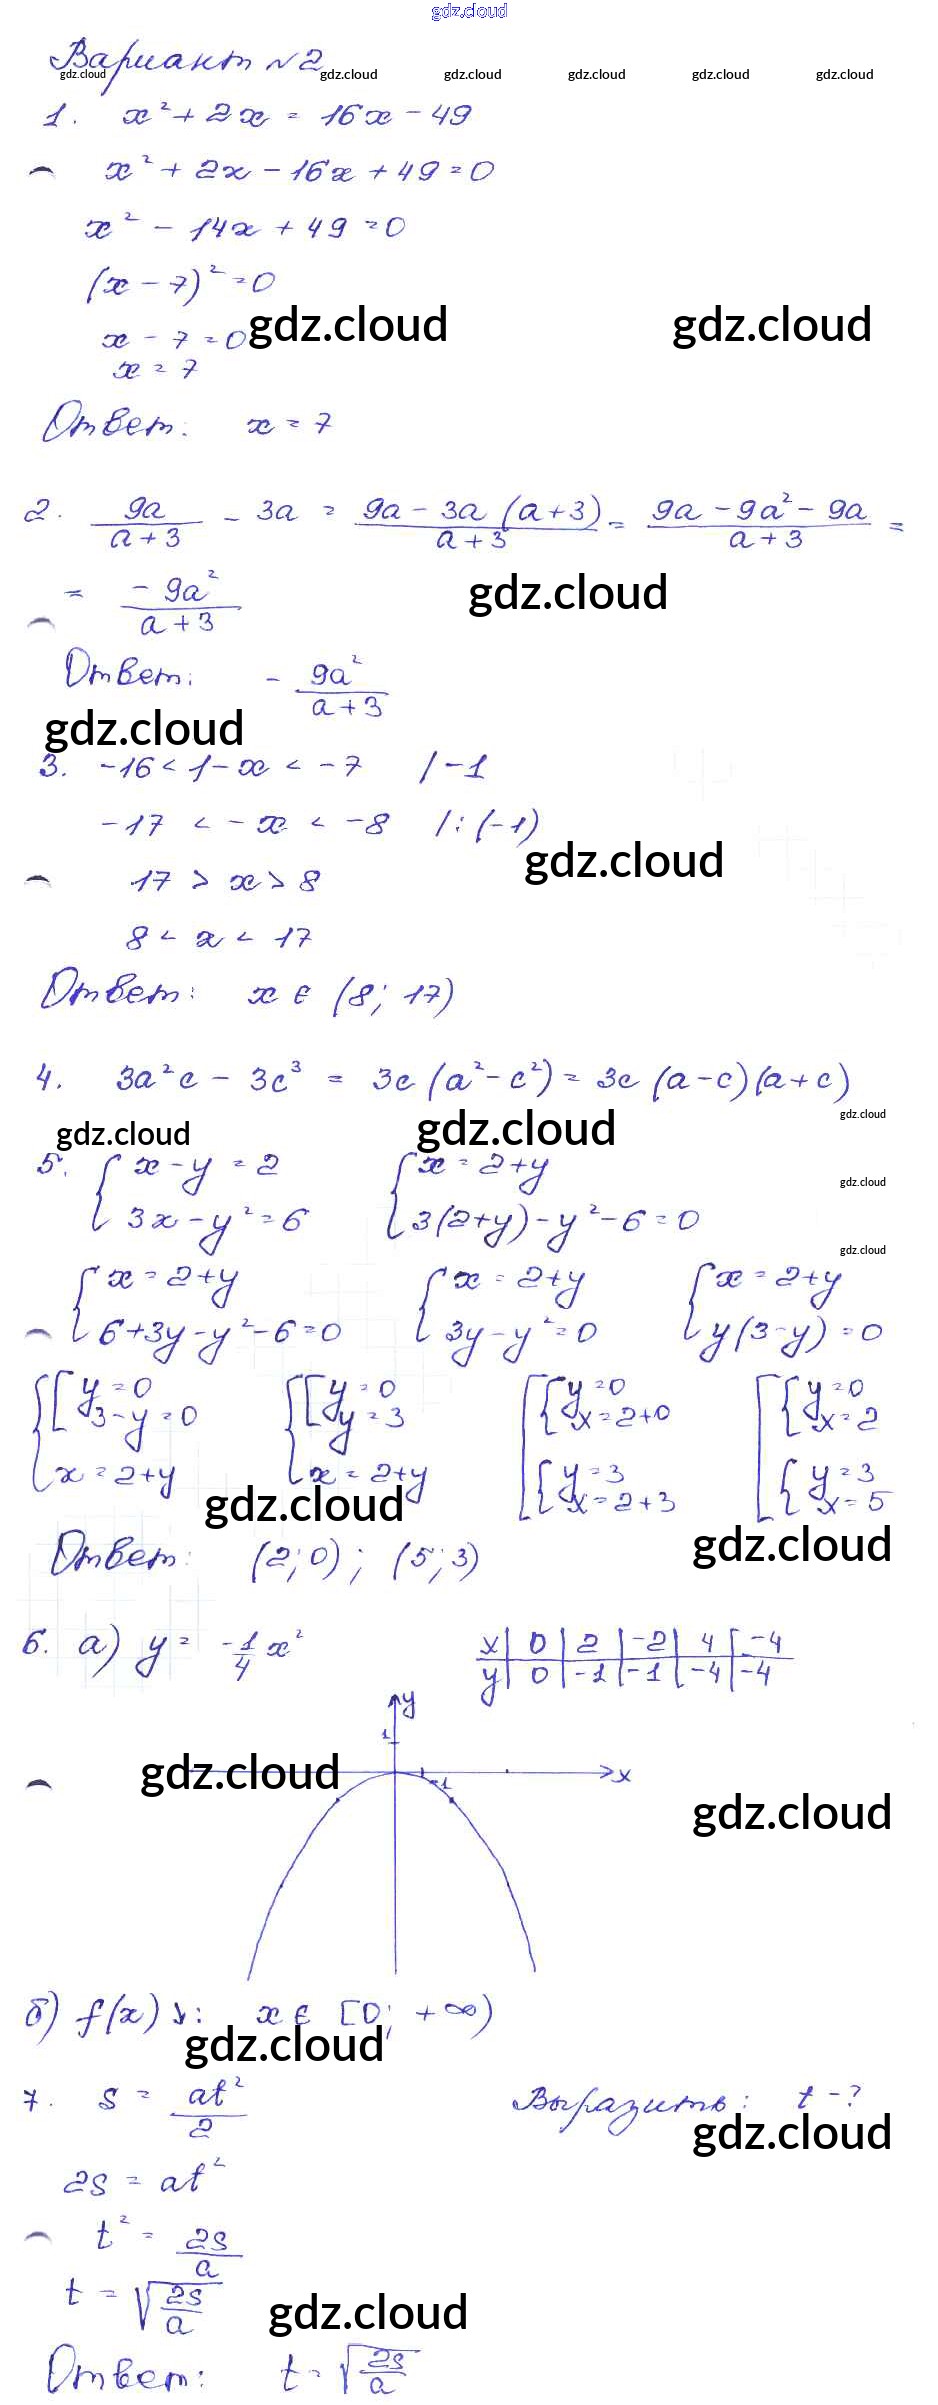 gdz.cloud
Вариант №2
gdz.cloud gdz.cloud gdz.cloud gdz.cloud gdz.cloud gdz.cloud
1. x² + 2x = 16x - 49
x² + 2x - 16x + 49 = 0
x² - 14x + 49 = 0
(x - 7)² = 0
x - 7 = 0
gdz.cloud gdz.cloud
x = 7
Ответ: x = 7
2. 9a/(a+3) - 3a = (9a - 3a(a+3))/(a+3) = (9a - 9a² - 9a)/(a+3) =
= (-9a²)/(a+3)
gdz.cloud
Ответ: - 9a²/(a+3)
gdz.cloud
3. -16 < 1-x < -7 | -1
-17 < -x < -8 |:(-1)
gdz.cloud
17 > x > 8
8 < x < 17
Ответ: x ∈ (8; 17)
4. 3a²c - 3c³ = 3c(a² - c²) = 3c(a-c)(a+c)
gdz.cloud gdz.cloud gdz.cloud
5. { x - y = 2 { x = 2+y
gdz.cloud
3x - y² = 6 3(2+y) - y² - 6 = 0
gdz.cloud
{ x = 2+y { x = 2+y { x = 2+y
6+3y-y²-6=0 3y - y² = 0 y(3-y) = 0
{ [ y = 0 { [ y = 0 [ { y = 0 [ { y = 0
3-y = 0 y = 3 x = 2+0 x = 2
x = 2+y x = 2+y { y = 3 { y = 3
x = 2+3 x = 5
gdz.cloud gdz.cloud
Ответ: (2; 0); (5; 3)
6. а) y = -1/4 x²
x | 0 | 2 | -2 | 4 | -4
y | 0 | -1 | -1 | -4 | -4
y
1
gdz.cloud
1
x
gdz.cloud
б) f(x) ↘: x ∈ [0; +∞)
gdz.cloud
7. s = at²/2 Выразить: t - ?
gdz.cloud
2s = at²
t² = 2s/a
t = √(2s/a)
gdz.cloud
Ответ: t = √(2s/a)